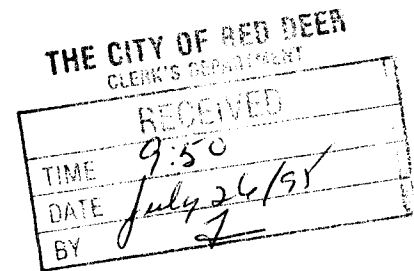 THE CITY OF RED DEER
CLERK'S DEPARTMENT
RECEIVED
TIME 9:50
DATE July 26/95
BY